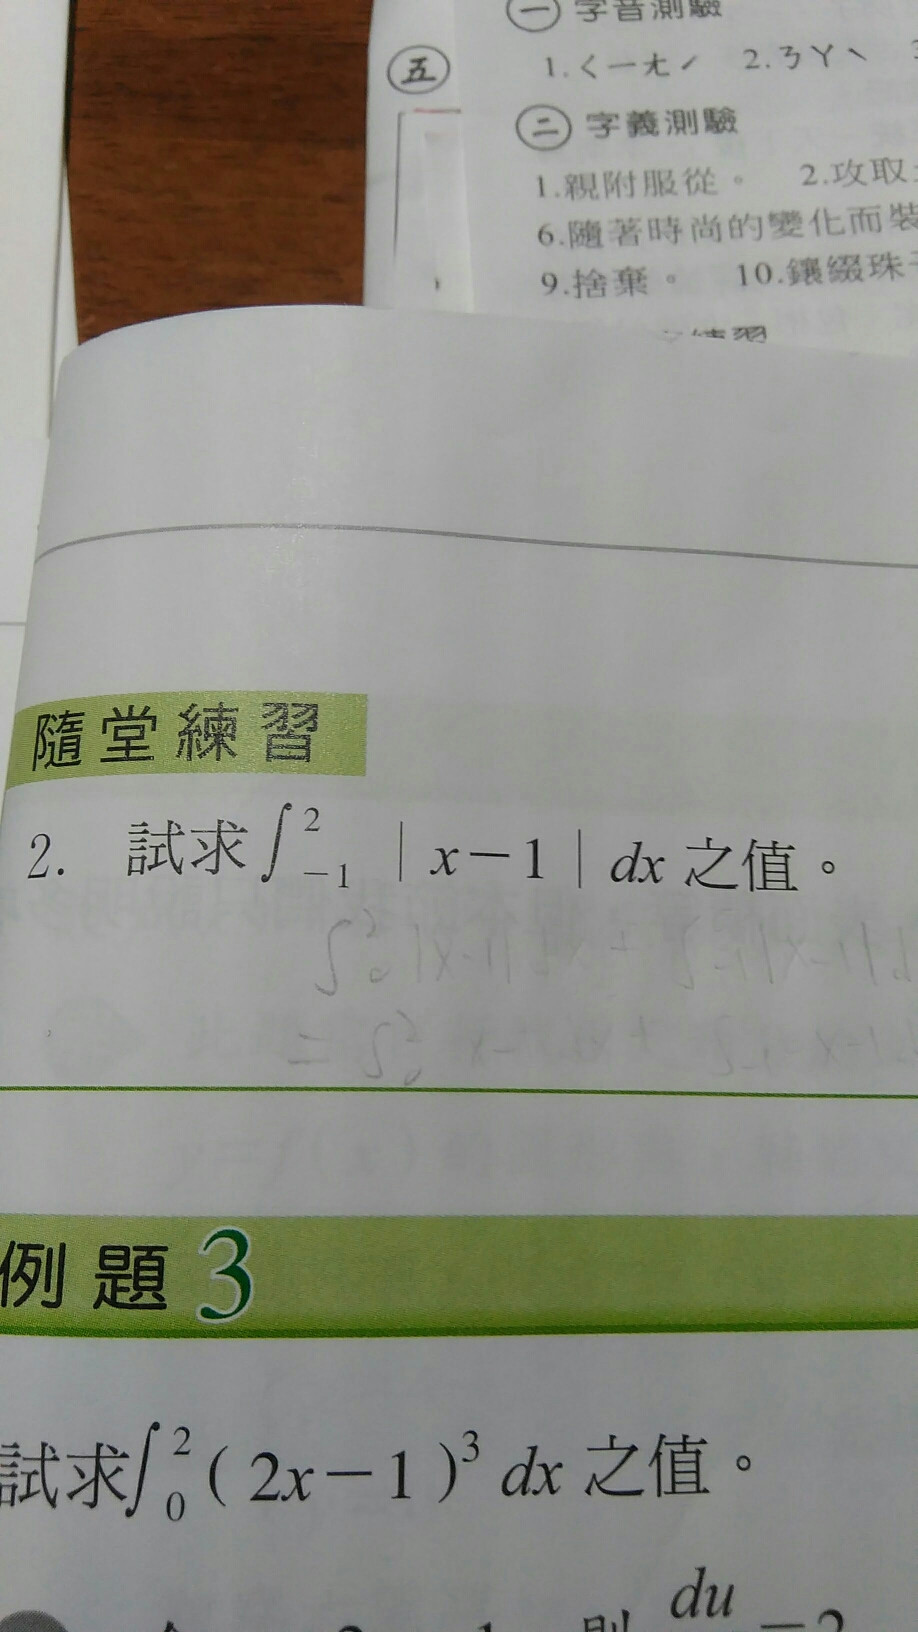 ㊀ 字音測驗
五
1.ㄑㄧㄤˊ 2.ㄋㄚˋ
㊁ 字義測驗
1.親附服從。 2.攻取
6.隨著時尚的變化而裝
9.捨棄。 10.鑲綴珠
練習
隨堂練習
2. 試求∫²₋₁ | x－1 | dx 之值。
例題 3
試求∫²₀ ( 2x－1 )³ dx 之值。
du